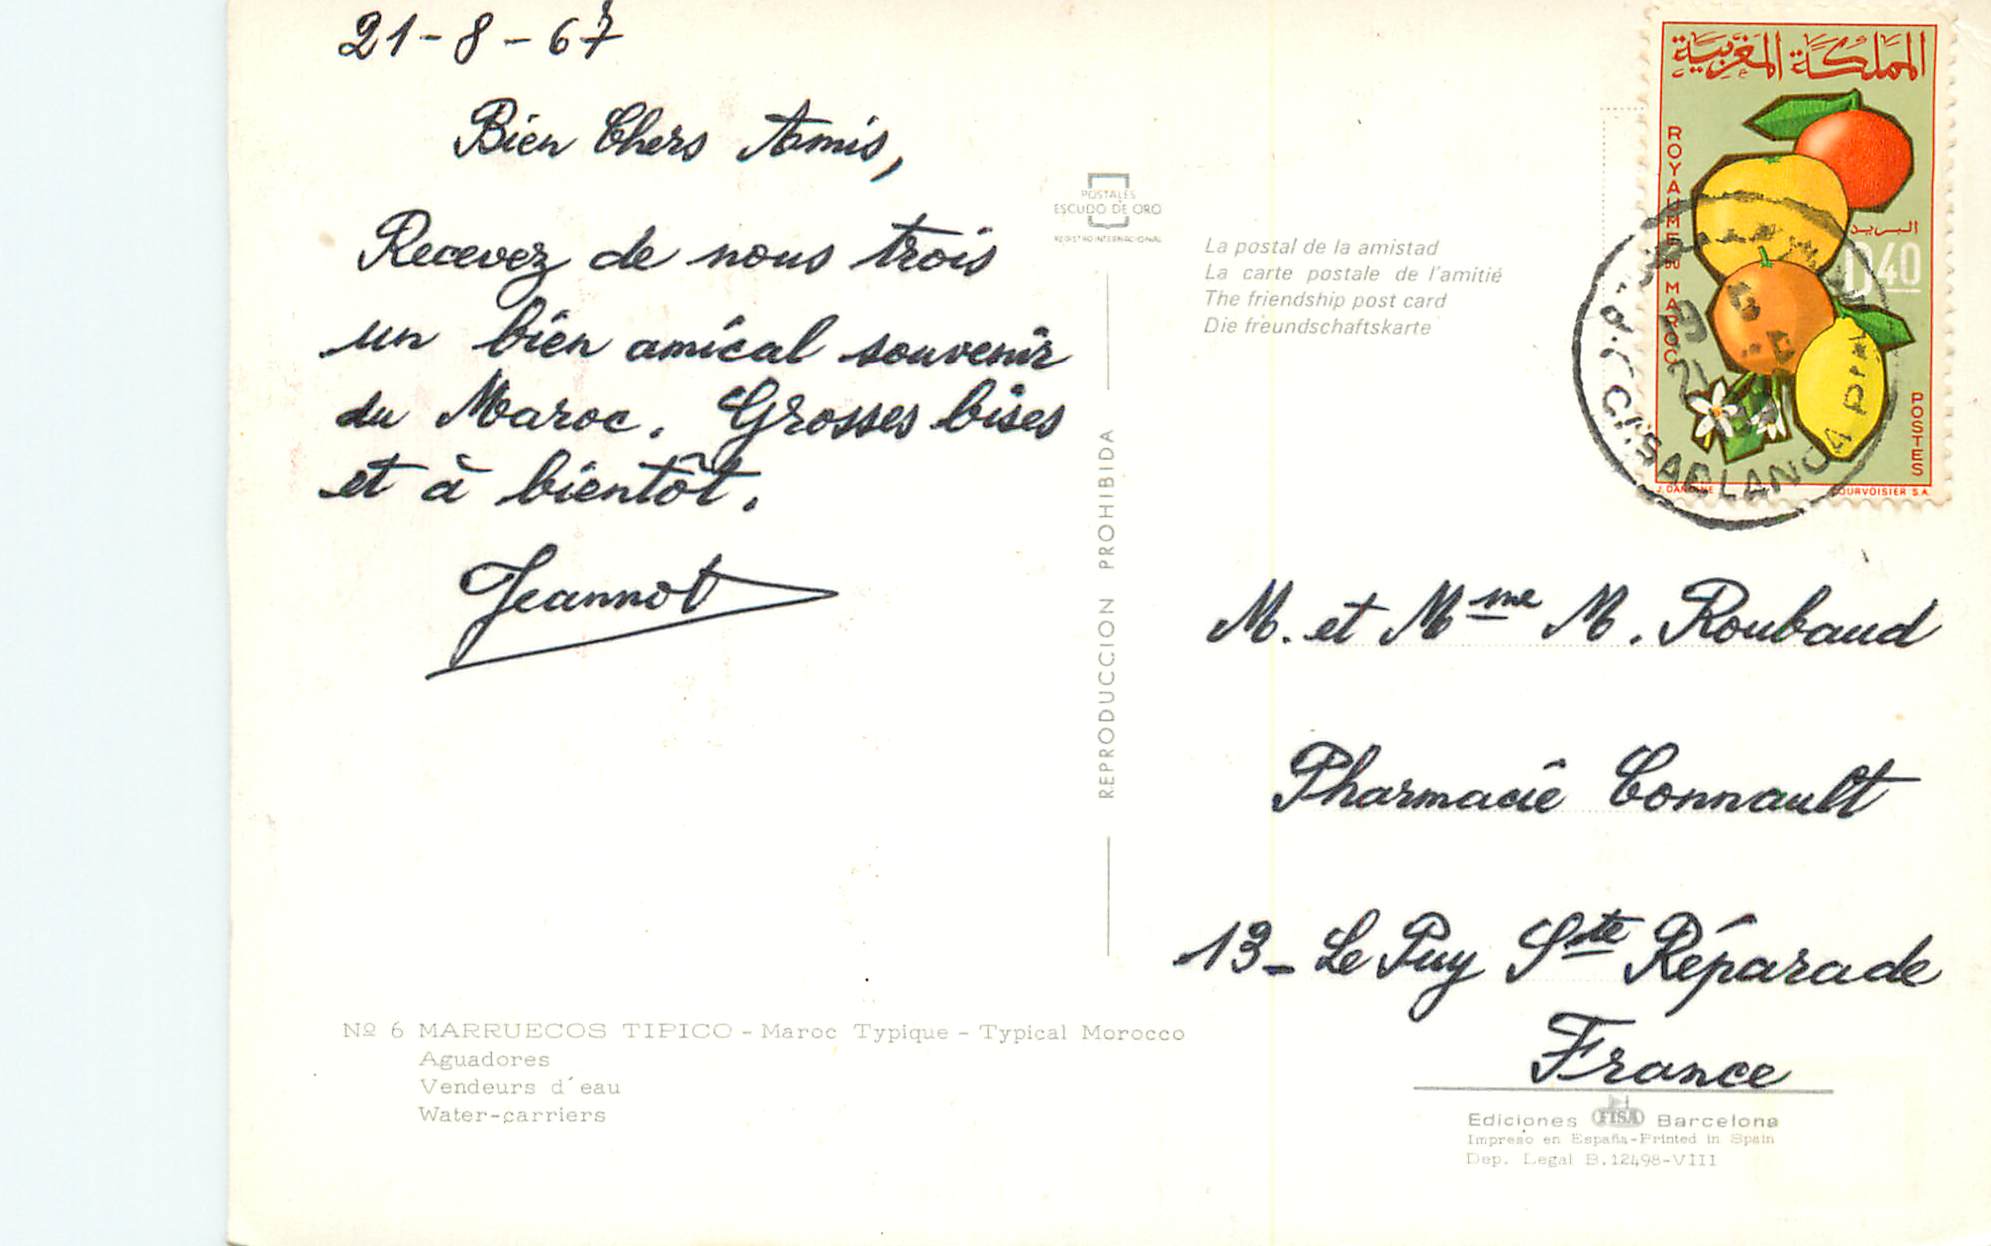 21-8-67
Bien Chers Amis,
Recevez de nous trois
un bien amical souvenir
du Maroc. Grosses bises
et à bientôt.
Jeannot
Nº 6 MARRUECOS TIPICO - Maroc Typique - Typical Morocco
Aguadores
Vendeurs d´eau
Water-carriers
POSTALES
ESCUDO DE ORO
REGISTRO INTERNACIONAL
REPRODUCCION PROHIBIDA
La postal de la amistad
La carte postale de l'amitié
The friendship post card
Die freundschaftskarte
المملكة المغربية
ROYAUME DU MAROC
البريد
0,40
POSTES
COURVOISIER S.A.
CASABLANCA
M. et Mme M. Roubaud
Pharmacie Connault
13 - Le Puy Ste Réparade
France
Ediciones FISA Barcelona
Impreso en España-Printed in Spain
Dep. Legal B.12498-VIII